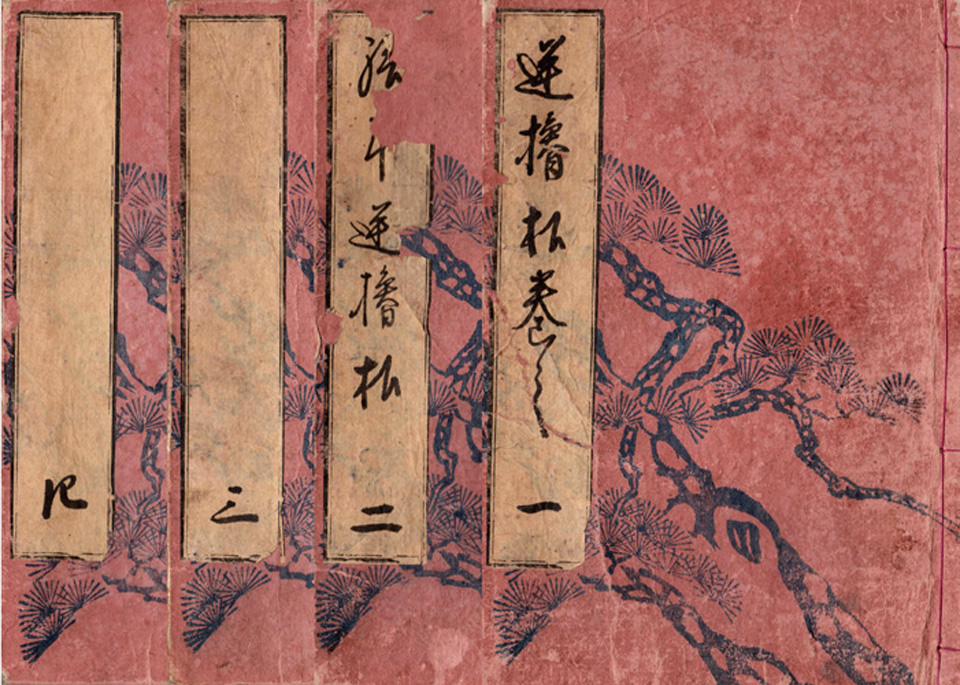 逆櫓松巻之一
絵本逆櫓松二
三
四